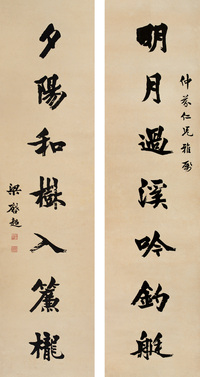 仲棻仁兄雅屬
明月過溪吟釣艇
夕陽和樹入簾櫳
梁啟超